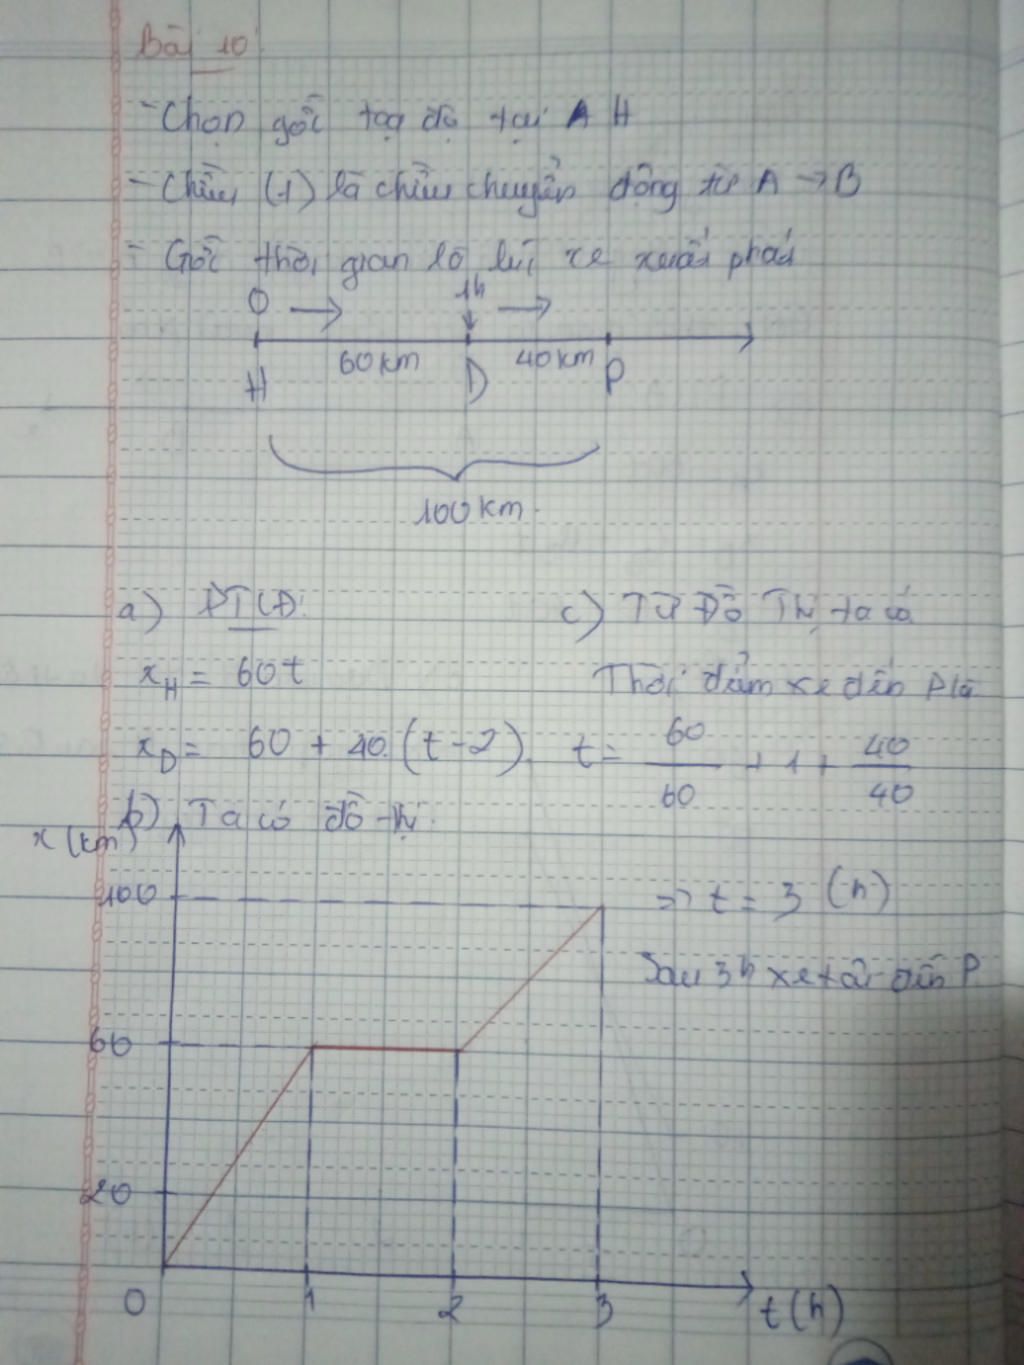 Bài 10
- Chọn gốc tọa độ tại A H
- Chiều (+) là chiều chuyển động từ A → B
- Gốc thời gian là lúc xe xuất phát
O → 1h →
60km 40km
H D P
100km.
a) PTCĐ:
x_H = 60t
x_D = 60 + 40.(t-2).
b) Ta có đồ thị.
c) Từ Đồ Thị ta có
Thời điểm xe đến P là
t = 60/60 + 1 + 40/40
=> t = 3 (h)
Sau 3h xe tới đến P.
x (km)
100
60
20
0 1 2 3 t(h)